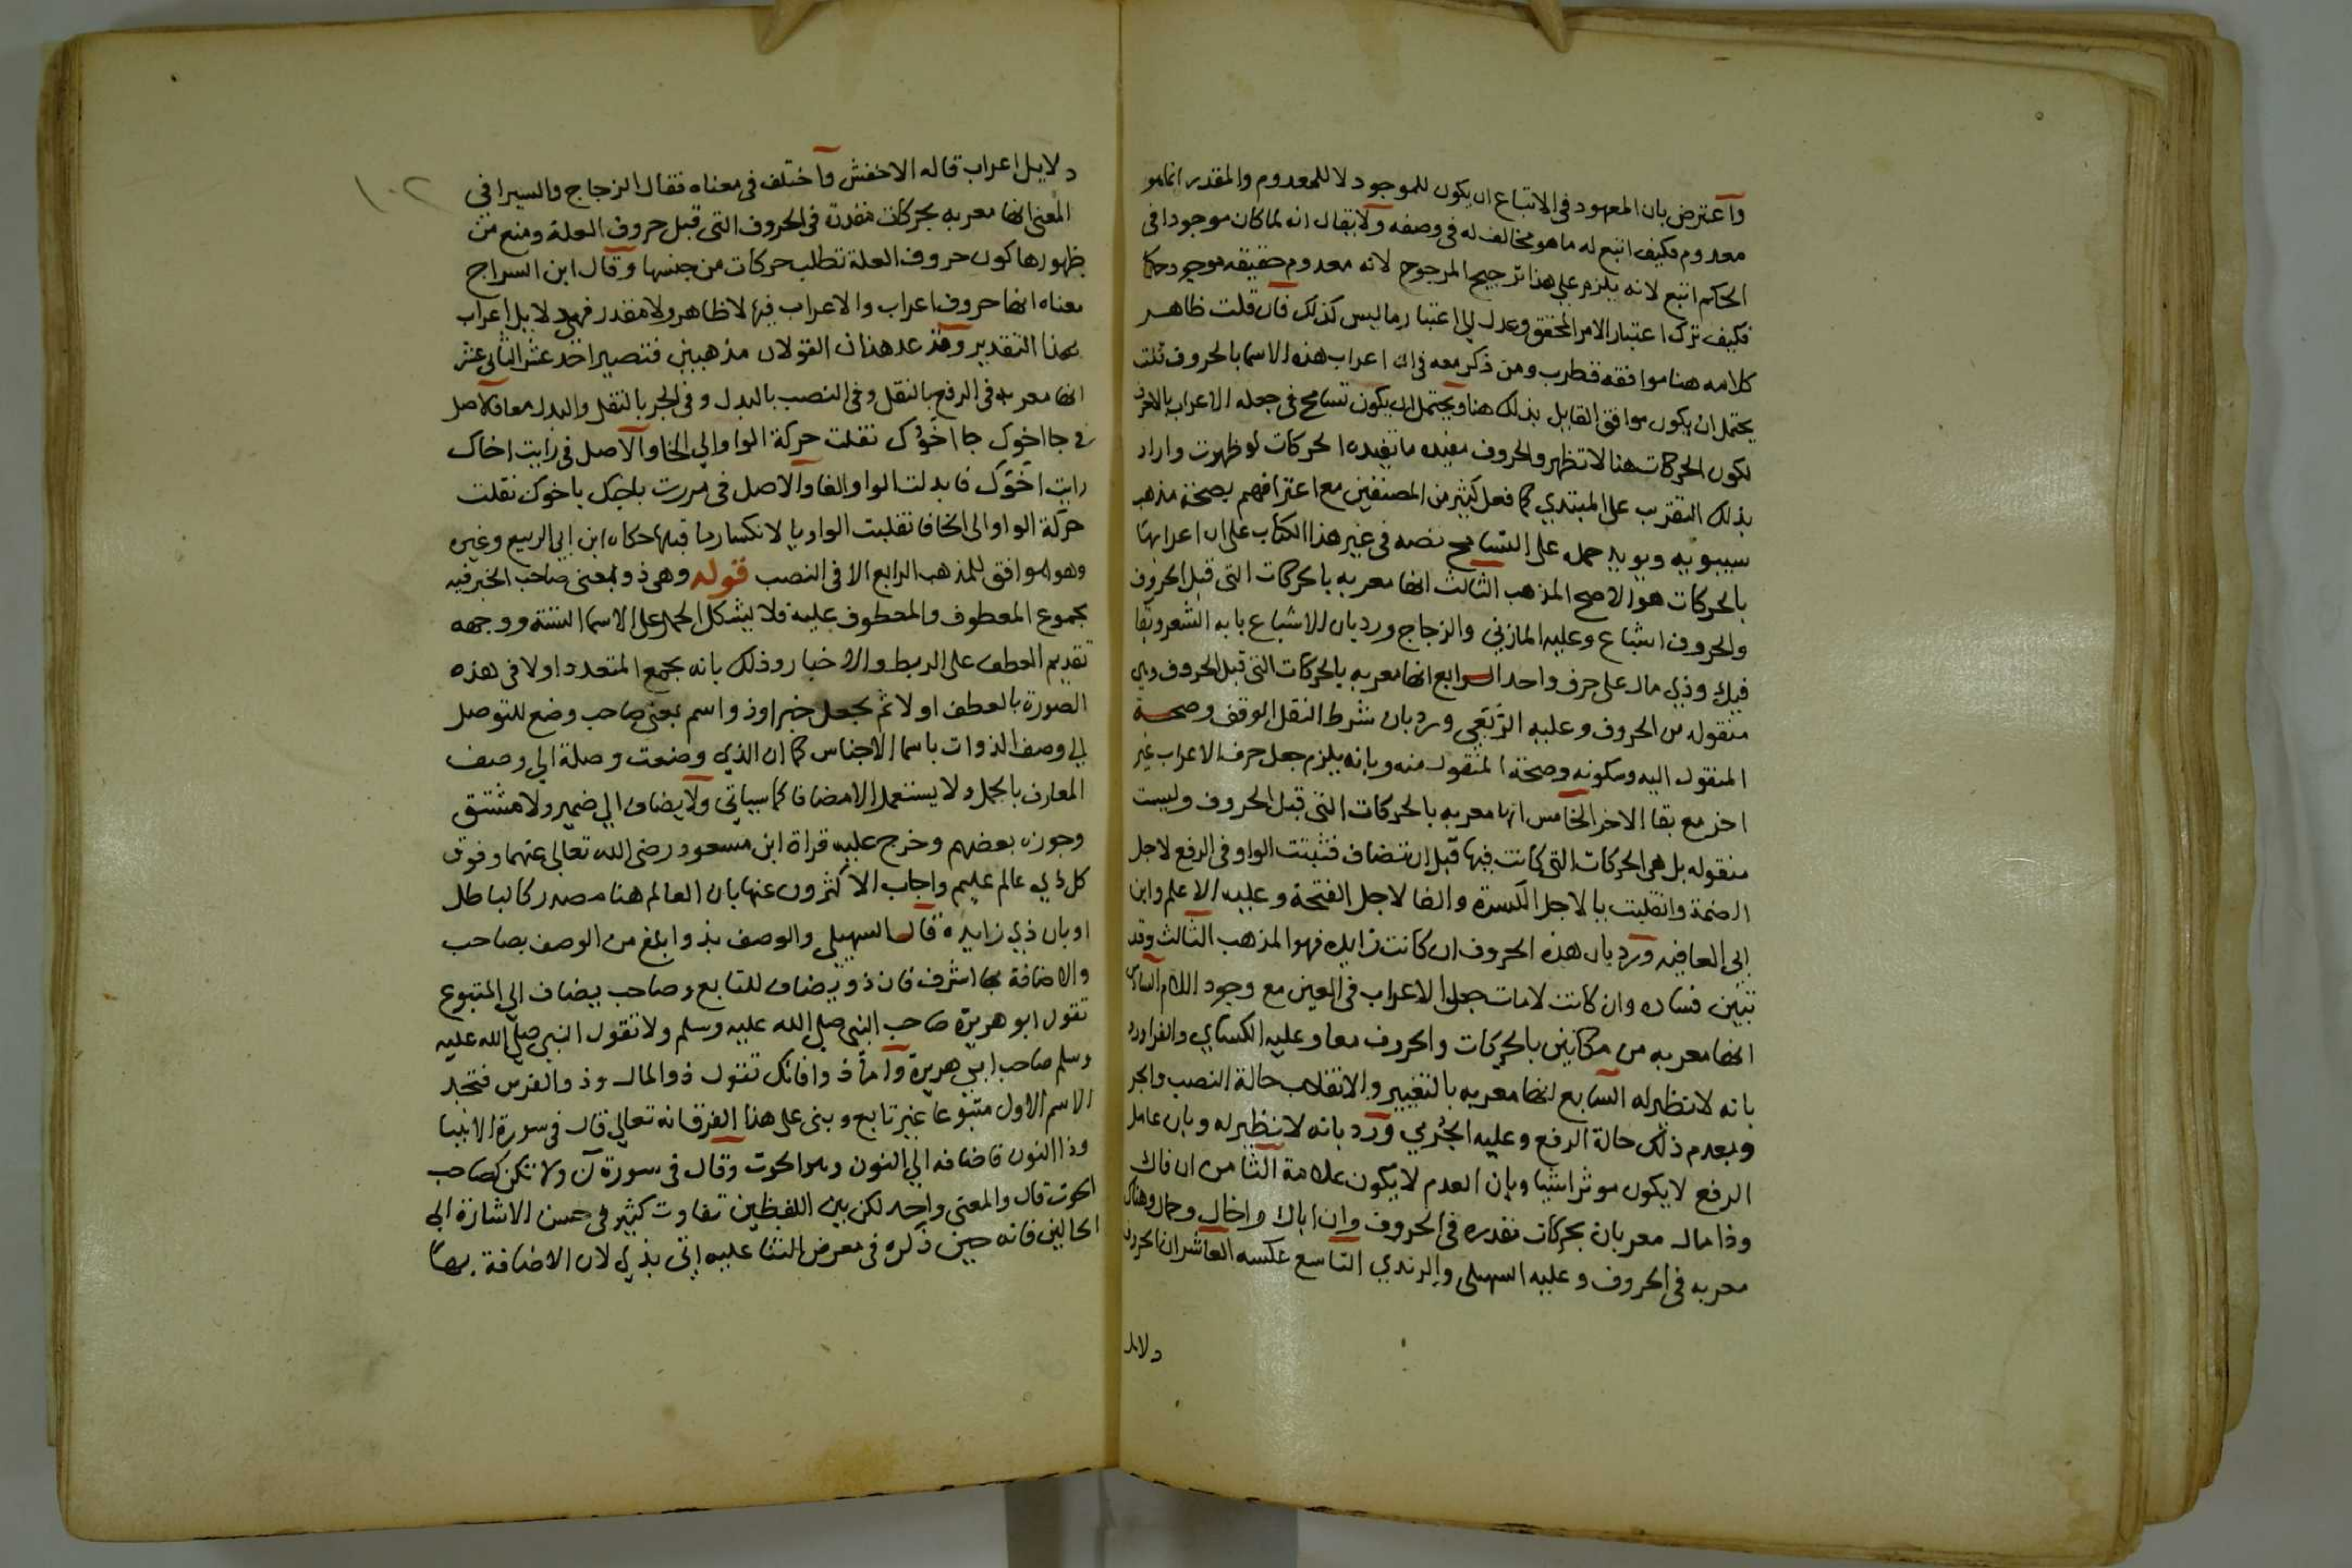 واعترض بان المعهود في الاتباع ان يكون للموجود لا للمعدوم والمقدر انما هو
معدوم فكيف اتبع له ما هو مخالف له في وصفه ولا يقال انه لما كان موجودا في
الحاكم اتبع لانه يلزم على هذا ترجيح المرجوح لانه معدوم حقيقه موجود حكما
فكيف ترك اعتبار الامر المحقق وعدل الى اعتبار ما ليس كذلك فان قلت ظاهر
كلامه هنا موافقة قطرب ومن ذكر معه في ان اعراب هذه الاسما بالحروف قلت
يحتمل ان يكون موافق القايل بذلك هنا ويحتمل ان يكون تسامح في جعله الاعراب بالاحرف
لكون الحركات هنا لا تظهر والحروف مفيده ما تفيده الحركات لو ظهرت واراد
بذلك التقرب على المبتدي كما فعل كثير من المصنفين مع اعترافهم بصحة مذهب
سيبويه ويويد حمله على التسامح نصه في غير هذا الكتاب على ان اعرابها
بالحركات هو الاصح المذهب الثالث انها معربه بالحركات التي قبل الحروف
والحروف اشباع وعليه المازني والزجاج ورد بان الاشباع بابه الشعر وبقا
فيك وذي مال على حرف واحد الرابع انها معربه بالحركات التى قبل الحروف وهي
منقوله من الحروف وعليه الربعي ورد بان شرط النقل الوقف وصحة
المنقول اليه وسكونه وصحة المنقول منه وبانه يلزم جعل حرف الاعراب غير
اخر مع بقا الاخر الخامس انها معربه بالحركات التى قبل الحروف وليست
منقوله بل هي الحركات التي كانت فيها قبل ان تضاف فثبتت الواو في الرفع لاجل
الضمة وانقلبت يا لاجل الكسرة والفا لاجل الفتحة وعليه الاعلم وابن
ابي العافيه ورد بان هذه الحروف ان كانت زايده فهو المذهب الثالث وقد
تبين فساده وان كانت لامات جعل الاعراب في العين مع وجود اللام السادس
انها معربه من مكانين بالحركات والحروف معا وعليه الكساي والفرا ورد
بانه لا نظير له السابع انها معربه بالتغيير والانقلاب حالة النصب والجر
وبعدم ذلك حالة الرفع وعليه الجرمي ورد بانه لا نظير له وبان عامل
الرفع لا يكون موثرا شيا وبان العدم لا يكون علامة الثامن ان فاك
وذا مال معربان بحركات مقدره في الحروف وان اباك واخاك وحماك وهناك
معربه في الحروف وعليه السهيلى والرندي التاسع عكسه العاشر ان الحروف
دلايل
١٠٢
دلايل اعراب قاله الاخفش واختلف في معناه فقال الزجاج والسيرافي
المعنى انها معربه بحركات مقدرة في الحروف التى قبل حروف العلة ومنع من
ظهورها كون حروف العلة تطلب حركات من جنسها وقال ابن السراج
معناه انها حروف اعراب والاعراب فيها لا ظاهر ولا مقدر فهي دلايل اعراب
بهذا التقدير وقد عد هذان القولان مذهبين فتصير احد عشر الثاني عشر
انها معربه في الرفع بالنقل وفي النصب بالبدل وفي الجر بالنقل والبدل معا فالاصل
في جا اخوك جا اخوك نقلت حركة الواو الي الخا والاصل في رايت اخاك
رايت اخوك فابدلت الواو الفا والاصل في مررت باخيك باخوك نقلت
حركة الواو الى الخا فانقلبت الواو يا لانكسار ما قبلها حكاه ابن ابي الربيع وغيره
وهو موافق للمذهب الرابع الا في النصب قوله وهي ذو بمعنى صاحب الخبر فيه
مجموع المعطوف والمعطوف عليه فلا يشكل الحمل على الاسما الستة ووجهه
تقديم العطف على الربط والاخبار وذلك بانه يجمع المتعدد اولا في هذه
الصورة بالعطف اولا ثم يجعل خبرا وذو اسم بمعنى صاحب وضع للتوصل
الى وصف الذوات باسما الاجناس كما ان الذي وضعت وصلة الي وصف
المعارف بالجمل ولا يستعمل الا مضافا كما سياتي ولا يضاف الي ضمير ولا مشتق
وجوزه بعضهم وخرج عليه قراة ابن مسعود رضى الله تعالى عنهما وفوق
كل ذي عالم عليم واجاب الاكثرون عنها بان العالم هنا مصدر كالباطل
او بان ذي زايدة قال السهيلي والوصف بذو ابلغ من الوصف بصاحب
والاضافة بها اشرف فان ذو يضاف للتابع وصاحب يضاف الى المتبوع
تقول ابو هريرة صاحب النبي صلى الله عليه وسلم ولا تقول النبي صلى الله عليه
وسلم صاحب ابي هريرة واما ذو فانك تقول ذو المال وذو الفرس فتجد
الاسم الاول متبوعا غير تابع وبنى على هذا الفرق انه تعالى قال في سورة الانبيا
وذا النون فاضافه الي النون وهو الحوت وقال في سورة ن ولا تكن كصاحب
الحوت قال والمعنى واحد لكن بين اللفظين تفاوت كثير في حسن الاشارة الى
الحالين فانه حين ذكره في معرض الثنا عليه اتى بذي لان الاضافة بها